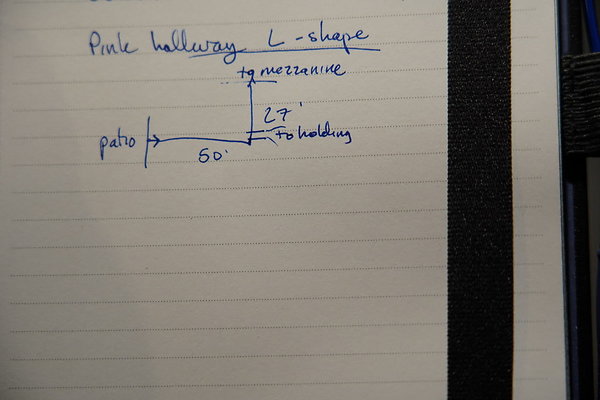 Pink hallway L-shape
to mezzanine
27'
to holding
patio
50'